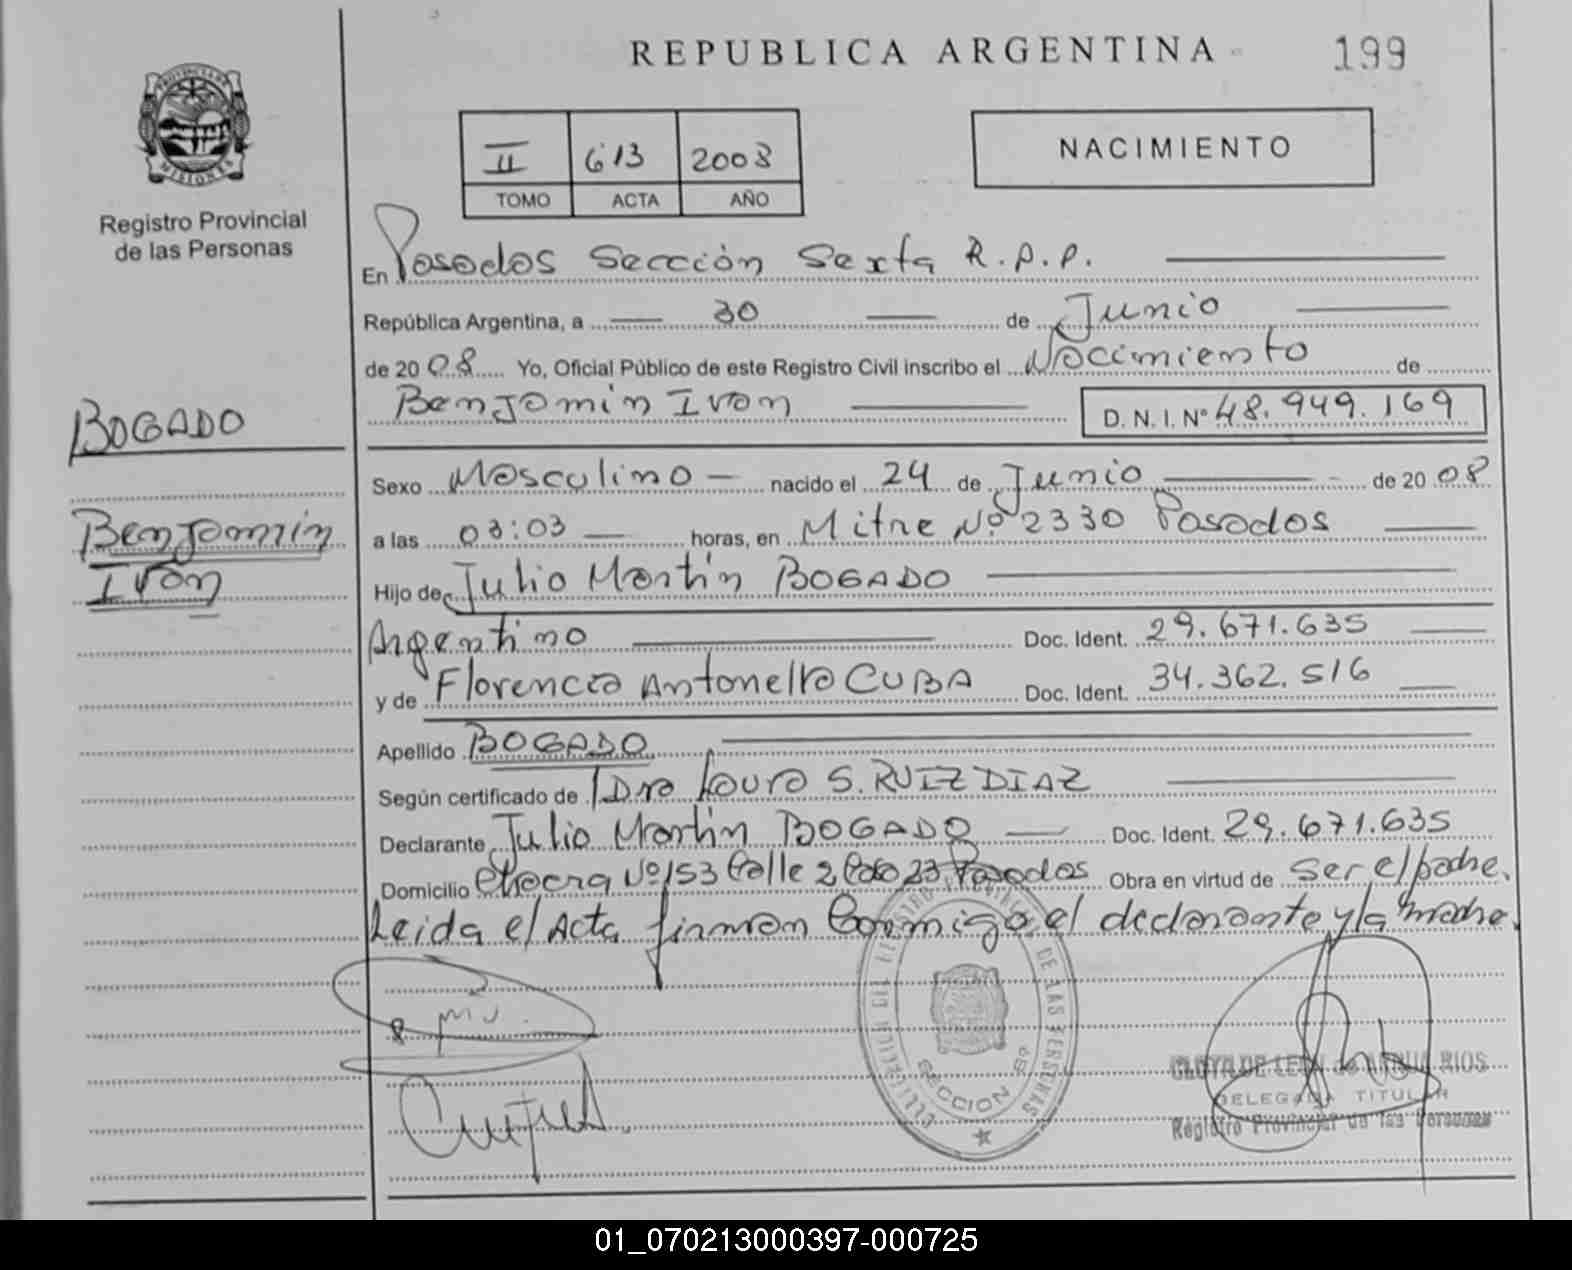 REPUBLICA ARGENTINA
199
PROVINCIA DE
MISIONES
Registro Provincial
de las Personas
II 613 2008
TOMO ACTA AÑO
NACIMIENTO
En Posadas Sección Sexta R.P.P.
República Argentina, a 30 de Junio
de 2008 Yo, Oficial Público de este Registro Civil inscribo el Nacimiento de
Benjamin Ivan D. N. I. Nº 48.949.169
BOGADO
Benjamin
Ivan
Sexo Masculino nacido el 24 de Junio de 2008
a las 03:03 horas, en Mitre Nº 2330 Posadas
Hijo de Julio Martin BOGADO
Argentino Doc. Ident. 29.671.635
y de Florencia Antonella CUBA Doc. Ident. 34.362.516
Apellido BOGADO
Según certificado de Dra Laura S. RUIZ DIAZ
Declarante Julio Martin BOGADO Doc. Ident. 29.671.635
Domicilio Chacra Nº 153 Calle 2 23 Posadas Obra en virtud de Ser el padre.
Leida el Acta firman Conmigo el declarante y la madre.
DE LAS PERSONAS
SECCION 6ª
DELEGADA TITULAR
Registro Provincial de las Personas
01_070213000397-000725